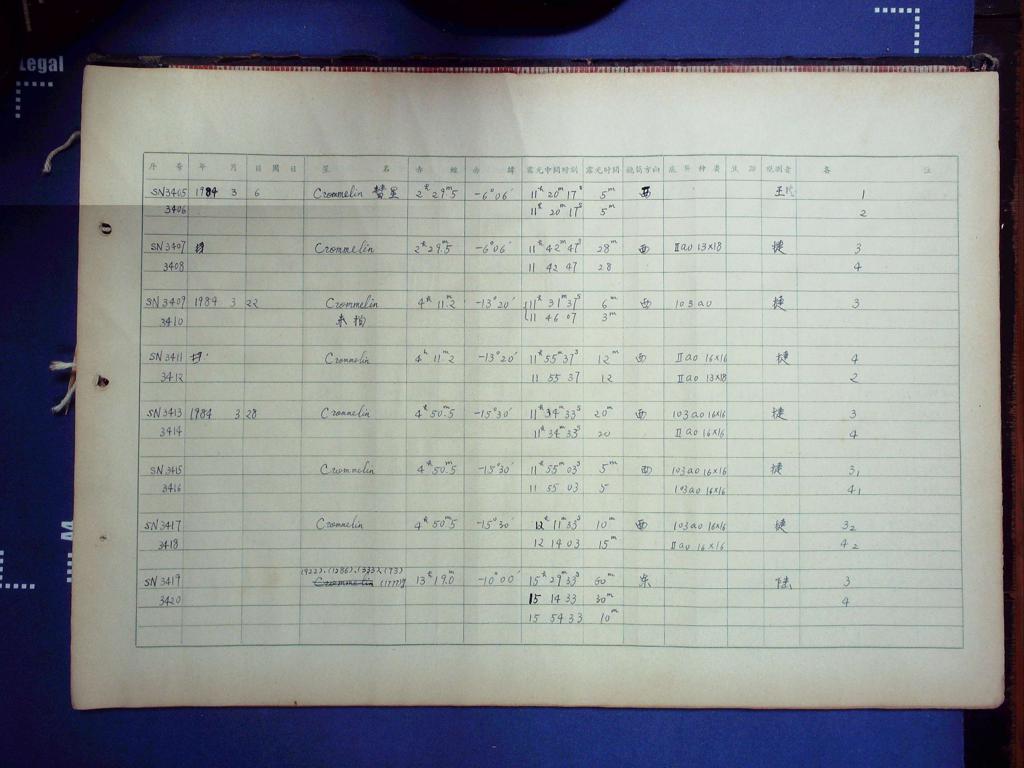 Legal
序 号 年 月 日 周 日 星 名 赤 经 赤 纬 露光中间时刻 露光时间 镜筒方向 底片种类 观测者 备 注
SN3405 1984 3 6 Crommelin 彗星 2ʰ 29ᵐ5 -6°06′ 11ʰ 20ᵐ 17ˢ 5ᵐ 西 1
3406 11ʰ 20ᵐ 17ˢ 5ᵐ 2
SN3407 Crommelin 2ʰ 29ᵐ.5 -6°06′ 11ʰ 42ᵐ 47ˢ 28ᵐ 西 IIaO 13×18 捷 3
3408 11 42 47 28 4
SN3409 1984 3 22 Crommelin 4ʰ 11ᵐ.2 -13°20′ 11ʰ 31ᵐ 37ˢ 6ᵐ 西 103aO 捷 3
3410 未拍 11 46 07 3ᵐ
SN3411 Crommelin 4ʰ 11ᵐ2 -13°20′ 11ʰ 55ᵐ 37ˢ 12ᵐ 西 IIaO 16×16 捷 4
3412 11 55 37 12 IIaO 13×18 2
SN3413 1984 3 28 Crommelin 4ʰ 50ᵐ.5 -15°30′ 11ʰ 34ᵐ 33ˢ 20ᵐ 西 103aO 16×16 捷 3
3414 11ʰ 34ᵐ 33ˢ 20 IIaO 16×16 4
SN3415 Crommelin 4ʰ 50ᵐ5 -15°30′ 11ʰ 55ᵐ 03ˢ 5ᵐ 西 103aO 16×16 捷 3₁
3416 11 55 03 5 103aO 16×16 4₁
SN3417 Crommelin 4ʰ 50ᵐ5 -15°30′ 12ʰ 11ᵐ 33ˢ 10ᵐ 西 103aO 16×16 捷 3₂
3418 12 14 03 15ᵐ IIaO 16×16 4₂
(922).(1286).(333).(73)
SN3419 Crommelin (1777) 13ʰ 19ᵐ.0 -10°00′ 15ʰ 29ᵐ 33ˢ 60ᵐ 东 陆 3
3420 15 14 33 30ᵐ 4
15 54 33 10ᵐ